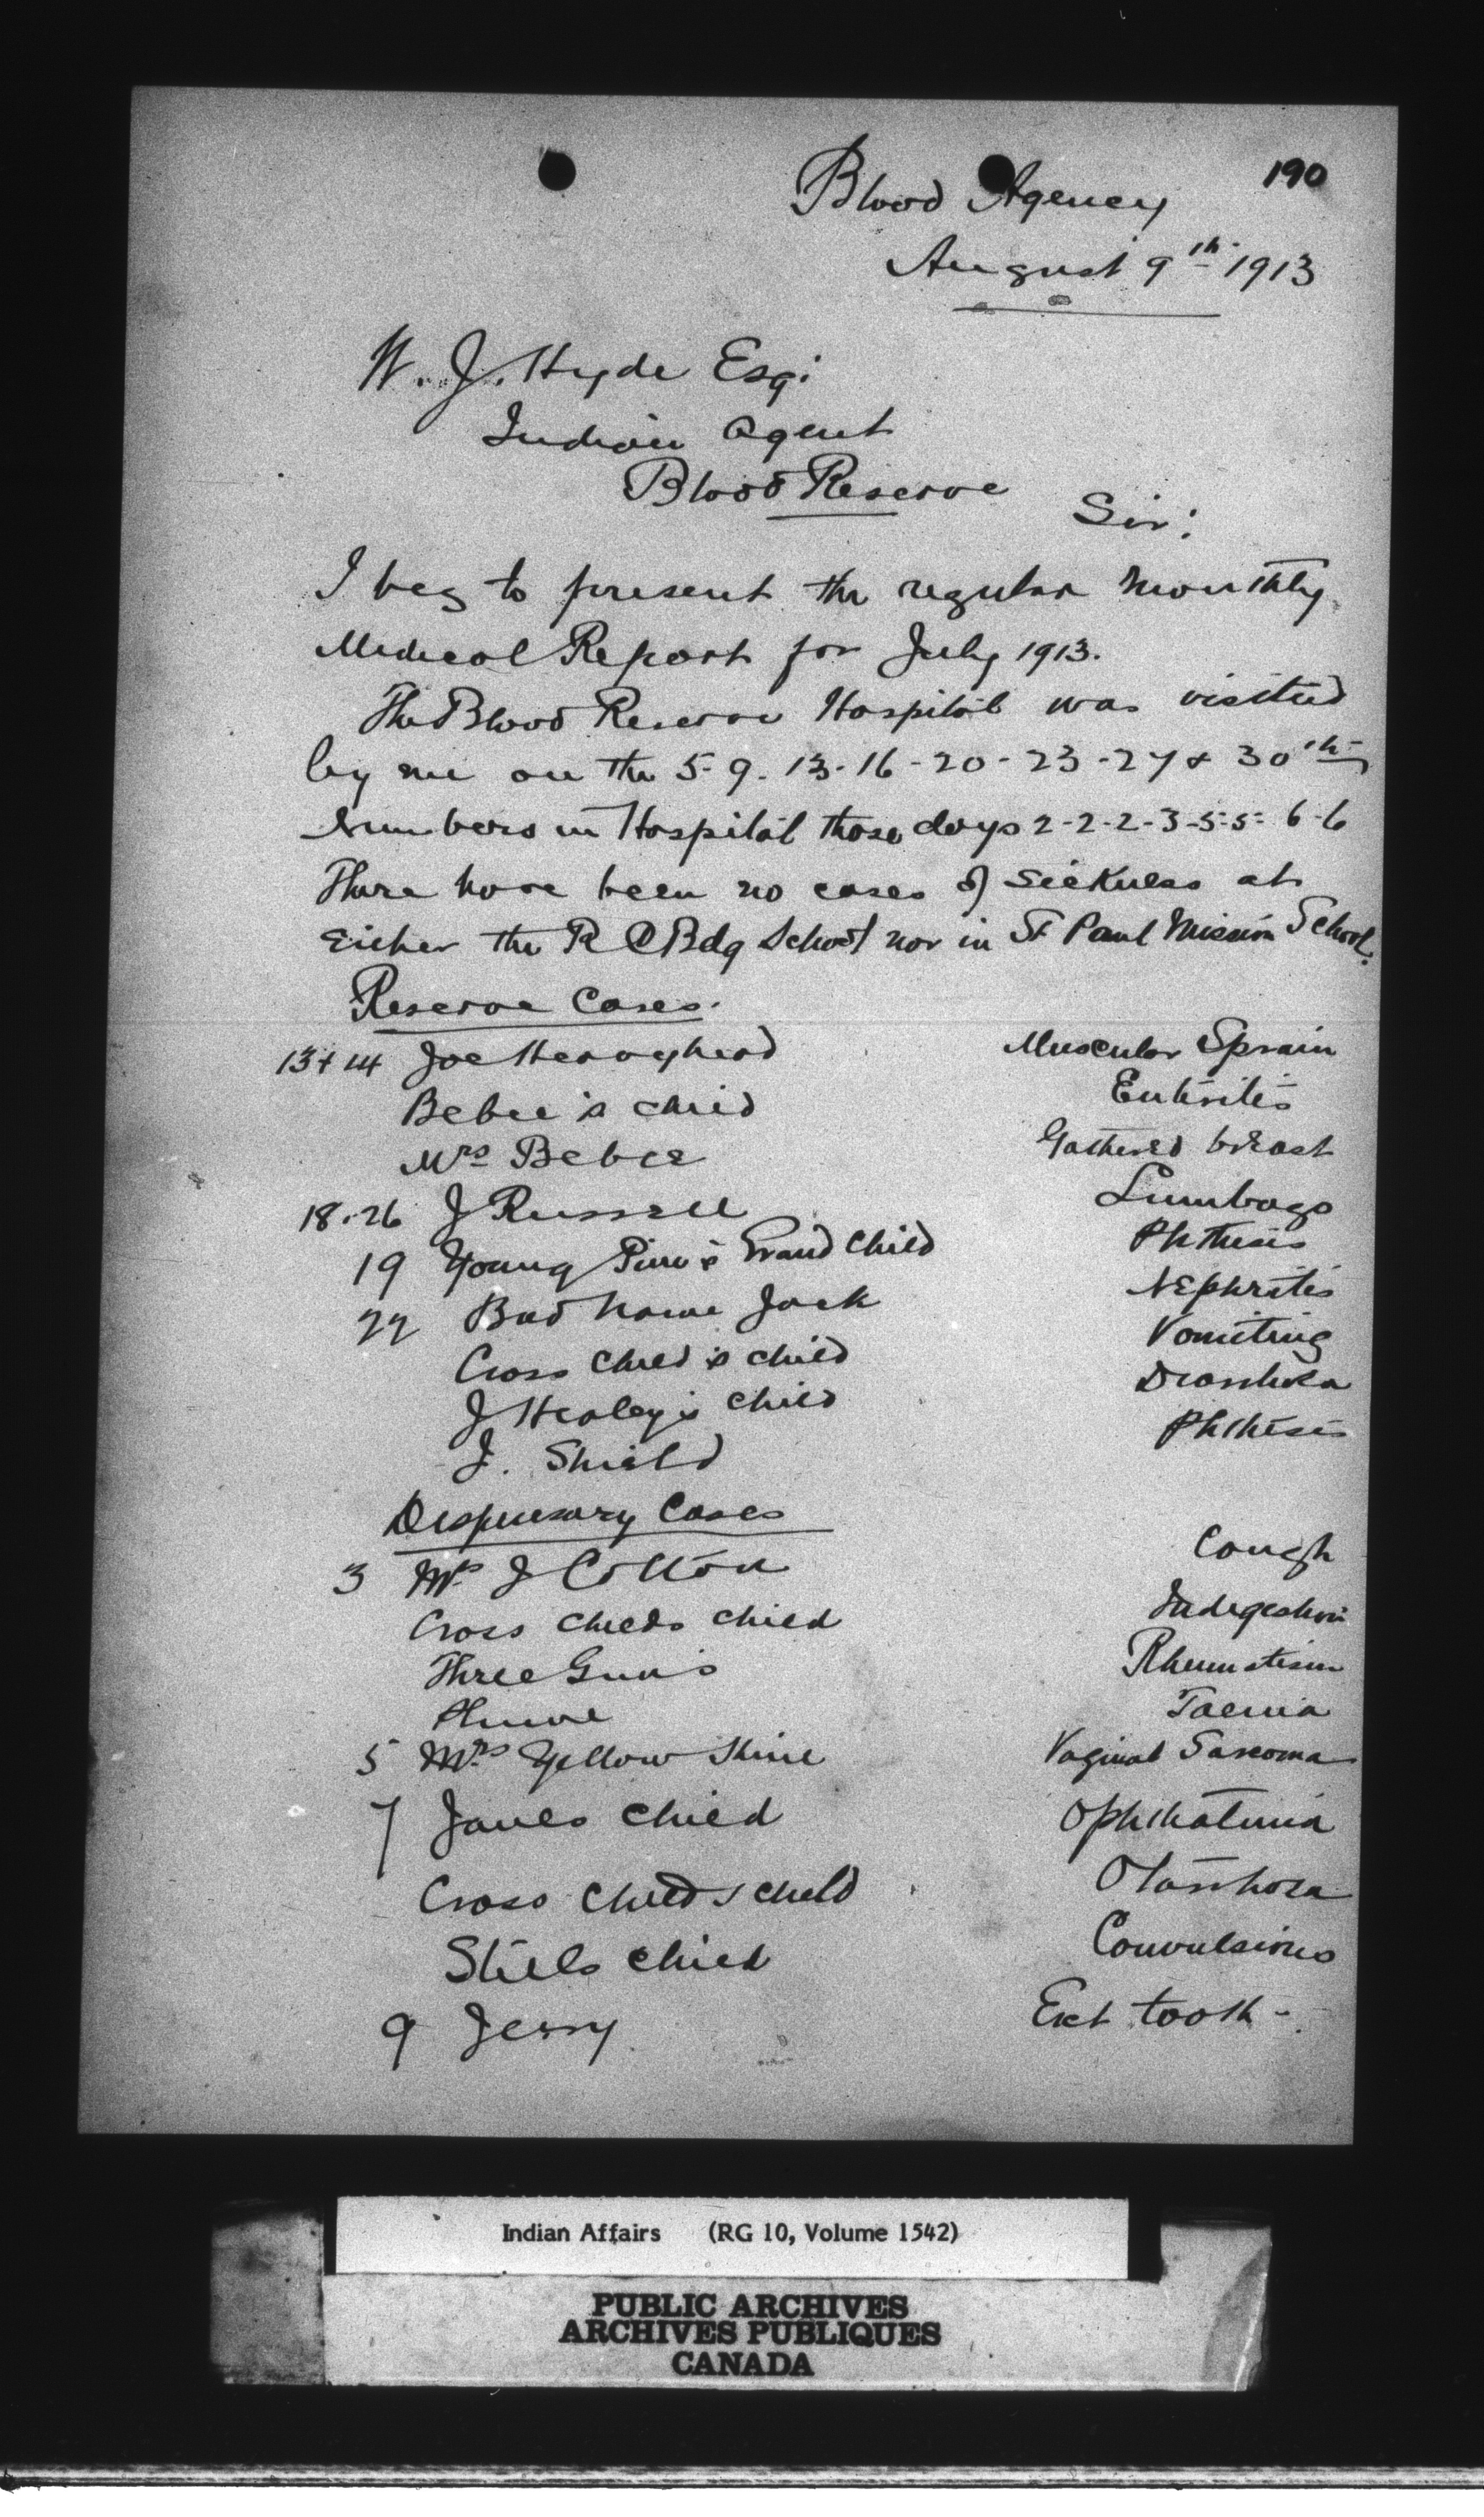 190
Blood Agency
August 9th 1913
W. J. Hyde Esq.
Indian Agent
Blood Reserve
Sir:
I beg to present the regular monthly
Medical Report for July 1913.
The Blood Reserve Hospital was visited
by me on the 5-9-13-16-20-23-27 & 30th
Numbers in Hospital those days 2-2-2-3-5-5-6-6
There have been no cases of sickness at
Either the R C Bdg School nor in St Paul Mission School.
Reserve Cases.
13+14 Joe Heavyhead Muscular Sprain
Bebee's child Enteritis
Mrs Bebee Gathered breast
18.26 J Russell Lumbago
19 Young Pine's Grand Child Phthisis
22 Bad Name Jack Nephritis
Cross Child's child Vomiting
J Healey's child Diarrhoea
J. Shield Phthisis
Dispensary Cases
3 Mrs J Cotton Cough
Cross Childs Child Indigestion
Three Guns Rheumatism
Plume Taenia
5 Mrs Yellow Shine Vaginal Sarcoma
7 Janes child Ophthalmia
Cross Childs child Otorrhoea
Steels child Convulsions
9 Jerry Ext tooth -
Indian Affairs (RG 10, Volume 1542)
PUBLIC ARCHIVES
ARCHIVES PUBLIQUES
CANADA